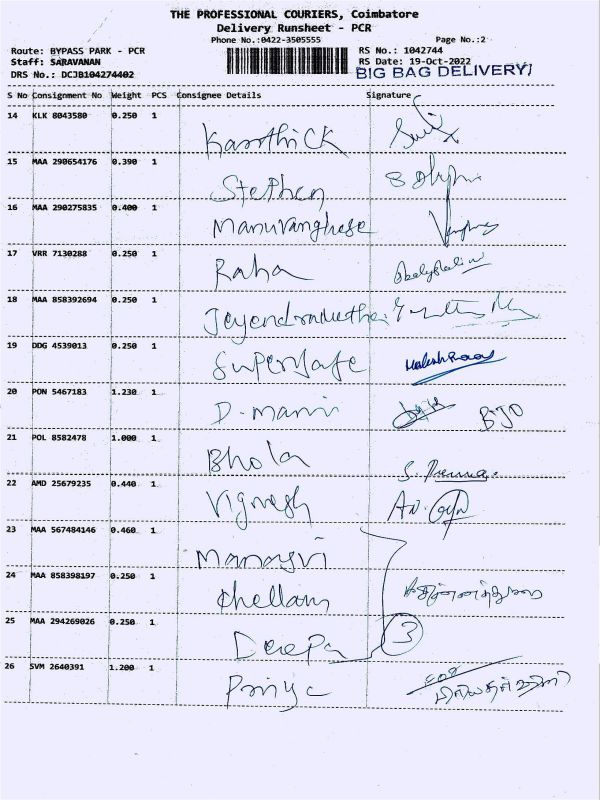 THE PROFESSIONAL COURIERS, Coimbatore
Delivery Runsheet - PCR
Phone No.:0422-3505555 Page No.:2
Route: BYPASS PARK - PCR RS No.: 1042744
Staff: SARAVANAN RS Date: 19-Oct-2022
DRS No.: DCJB104274402 BIG BAG DELIVERY
S No Consignment No Weight PCS Consignee Details Signature
14 KLK 8043580 0.250 1 Karthick
15 MAA 290654176 0.390 1 Stephen
16 MAA 290275835 0.400 1 Manuvarghese
17 VRR 7130288 0.250 1 Raha
18 MAA 858392694 0.250 1
19 DDG 4539013 0.250 1 Supersafe
20 PON 5467183 1.230 1 D. Mani
21 POL 8582478 1.000 1 Bhola
22 AMD 25679235 0.440 1 Vignesh
23 MAA 567484146 0.460 1
24 MAA 858398197 0.250 1 Chellam
25 MAA 294269026 0.250 1 Deepa 3
26 SVM 2640391 1.200 1 Priya